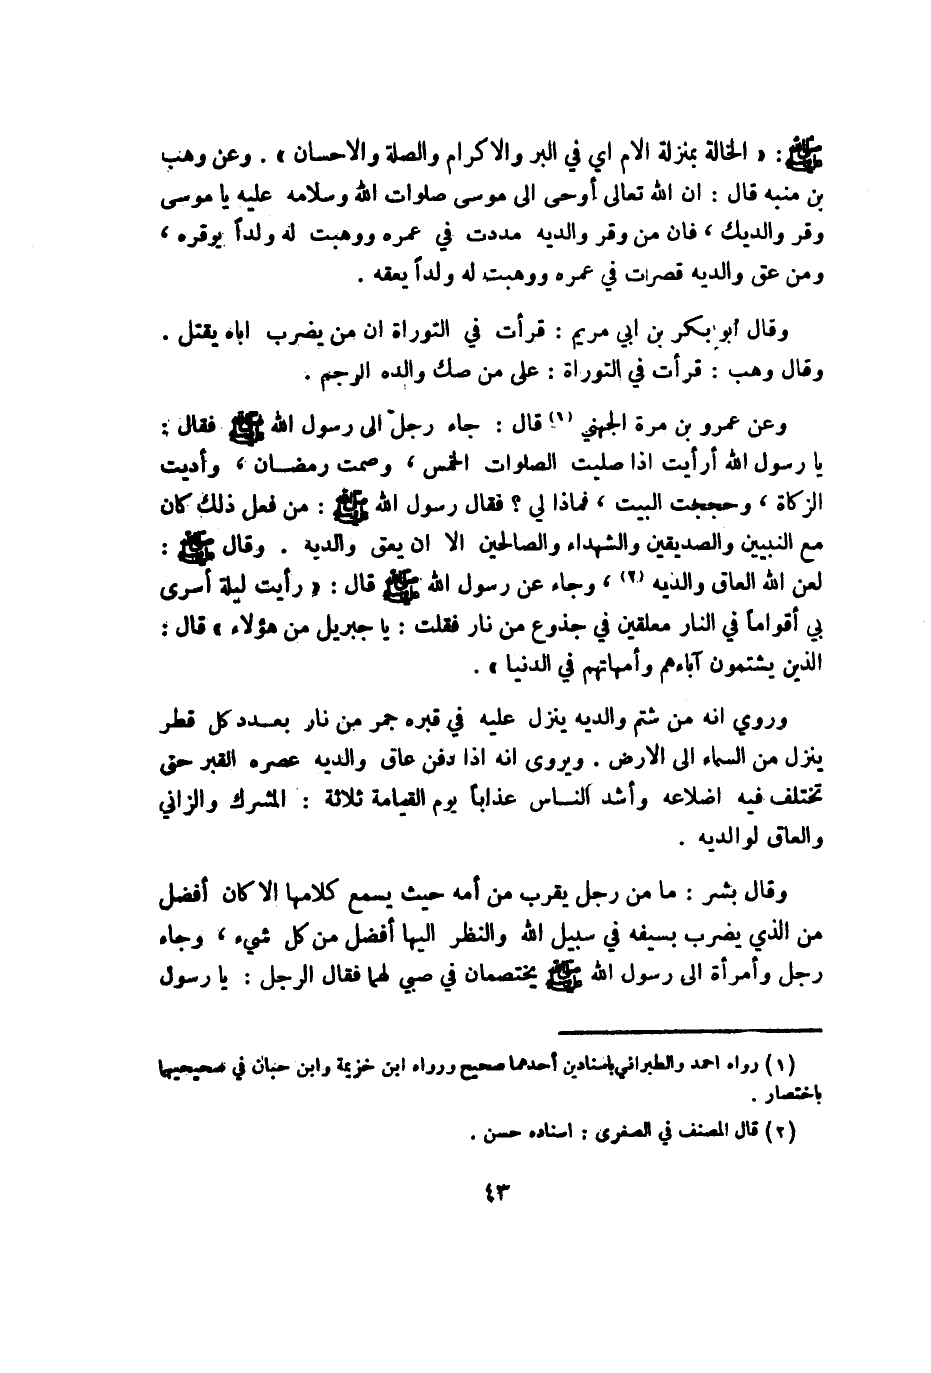 ﷺ : « الخالة بمنزلة الام اي في البر والاكرام والصلة والاحسان » . وعن وهب
بن منبه قال : ان الله تعالى أوحى الى موسى صلوات الله وسلامه عليه يا موسى
وقر والديك ، فان من وقر والديه مددت في عمره ووهبت له ولداً يوقره ،
ومن عق والديه قصرات في عمره ووهبت له ولداً يعقه .
وقال أبو بكر بن ابي مريم : قرأت في التوراة ان من يضرب اباه يقتل .
وقال وهب : قرأت في التوراة : على من صك والده الرجم .
وعن عمرو بن مرة الجهني (١) قال : جاء رجلٌ الى رسول الله ﷺ فقال :
يا رسول الله أرأيت اذا صليت الصلوات الخمس ، وصمت رمضان ، وأديت
الزكاة ، وحججت البيت ، فماذا لي ؟ فقال رسول الله ﷺ : من فعل ذلك كان
مع النبيين والصديقين والشهداء والصالحين الا ان يعق والديه . وقال ﷺ :
لعن الله العاق والديه (٢) ، وجاء عن رسول الله ﷺ قال : « رأيت ليلة أسرى
بي أقواماً في النار معلقين في جذوع من نار فقلت : يا جبريل من هؤلاء » قال :
الذين يشتمون آباءهم وأمهاتهم في الدنيا » .
وروي انه من شتم والديه ينزل عليه في قبره جمر من نار بعدد كل قطر
ينزل من السماء الى الارض . ويروى انه اذا دفن عاق والديه عصره القبر حتى
تختلف فيه اضلاعه وأشد الناس عذاباً يوم القيامة ثلاثة : المشرك والزاني
والعاق لوالديه .
وقال بشر : ما من رجل يقرب من أمه حيث يسمع كلامها الا كان أفضل
من الذي يضرب بسيفه في سبيل الله والنظر اليها أفضل من كل شيء ، وجاء
رجل وأمرأة الى رسول الله ﷺ يختصمان في صبي لهما فقال الرجل : يا رسول
(١) رواه احمد والطبراني باسنادين أحدهما صحيح ورواه ابن خزيمة وابن حبان في صحيحيهما
باختصار .
(٢) قال المصنف في الصغرى : اسناده حسن .
٤٣